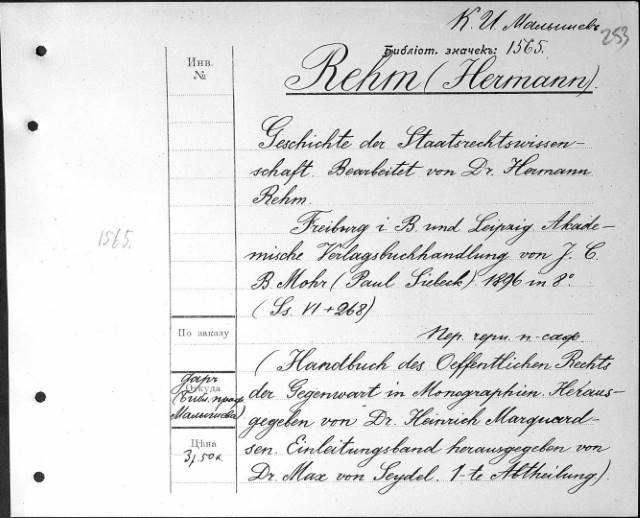 К. И. Малышевъ
253
Библіот. значекъ: 1565.
Rehm (Hermann).
Инв.
№
Geschichte der Staatsrechtswissen-
schaft. Bearbeitet von Dr. Hermann
Rehm.
1565.
Freiburg i B. und Leipzig Akade-
mische Verlagsbuchhandlung von J. C.
B. Mohr (Paul Siebeck). 1896 in 8º
(Ss. VI + 268)
По заказу
Пер. черн. п-саф
(Handbuch des Oeffentlichen Rechts
der Gegenwart in Monographien. Heraus-
gegeben von Dr. Heinrich Marquard-
sen. Einleitungsband herausgegeben von
Dr. Max von Seydel. 1-te Abtheilung).
Даръ
Откуда
(Библ. проф
Малышева)
Цѣна
3 р. 50 к